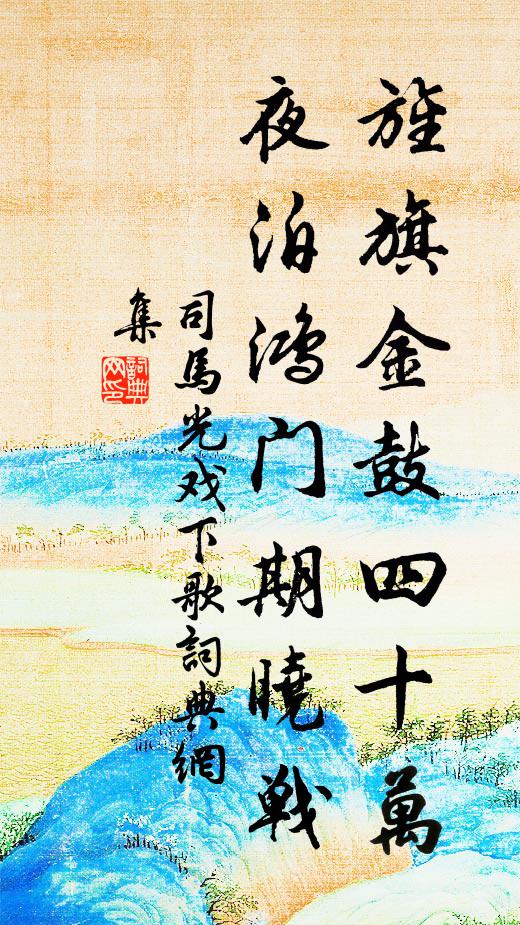 旌旗金鼓四十萬
夜泊鴻門期曉戰
司馬光戏下歌詞典網
集
詞典網印